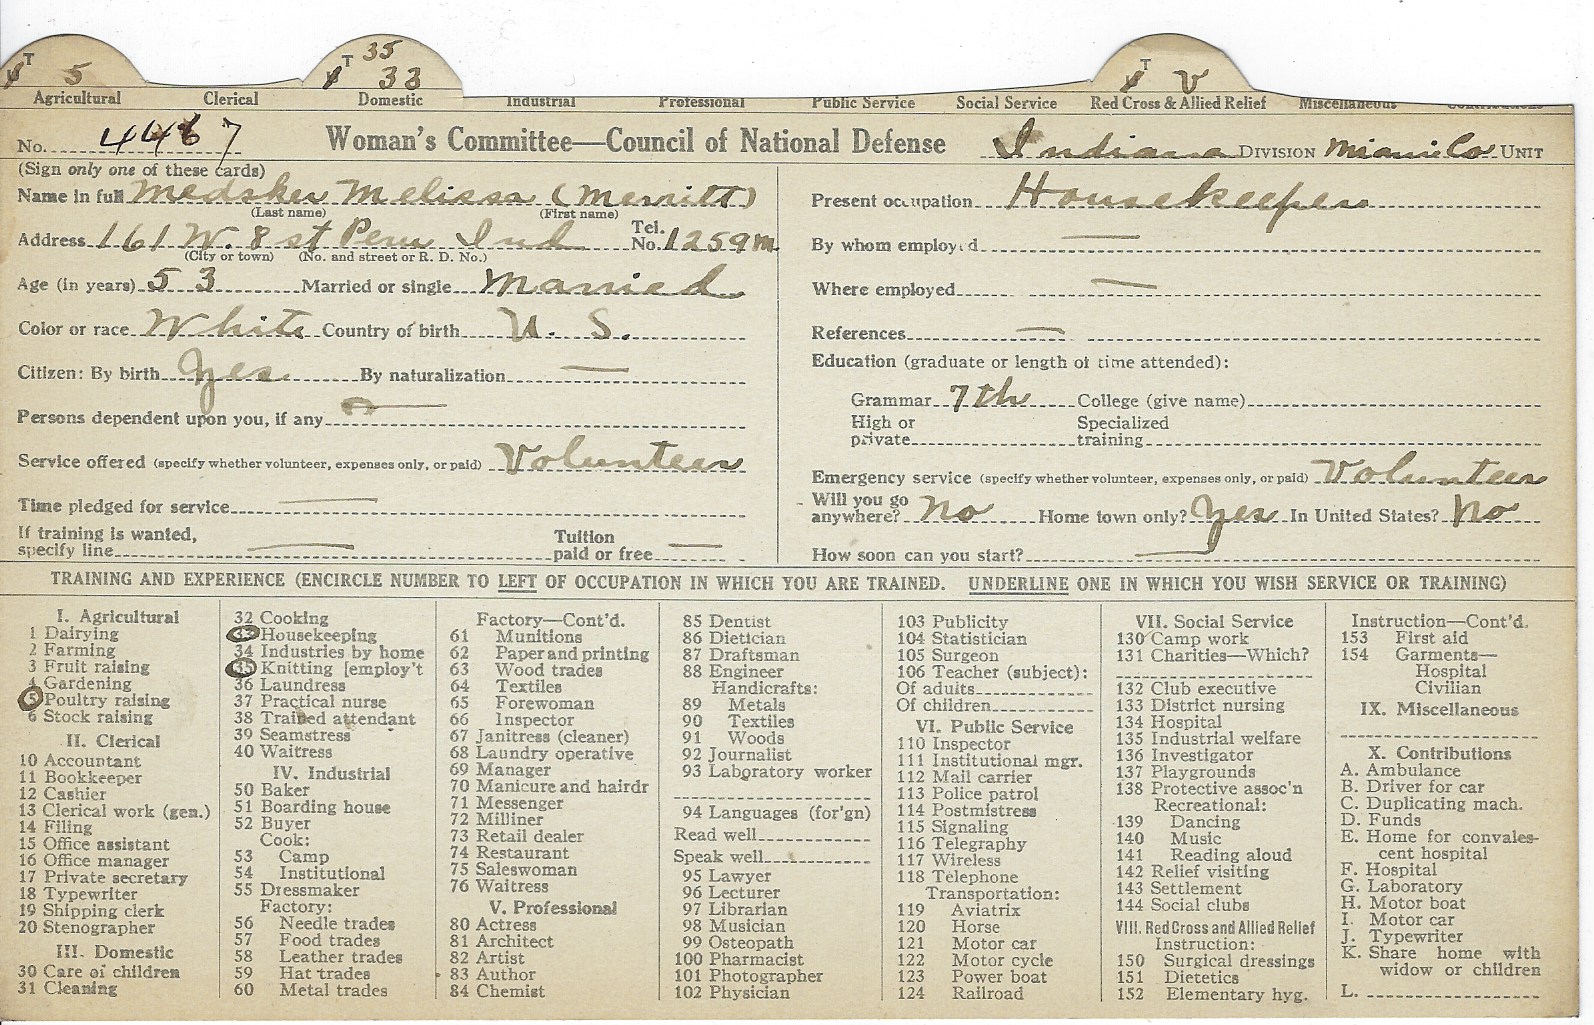 T 5
T 35
33
T V
Agricultural Clerical Domestic Industrial Professional Public Service Social Service Red Cross & Allied Relief Miscellaneous Contributions
No. 4467 Woman's Committee—Council of National Defense Indiana DIVISION Miami Co UNIT
(Sign only one of these cards)
Name in full Medsker Melissa (Merritt)
(Last name) (First name)
Address 161 W. 8 st Peru Ind Tel. No. 1259M
(City or town) (No. and street or R. D. No.)
Age (in years) 53 Married or single Married
Color or race White Country of birth U. S.
Citizen: By birth Yes By naturalization —
Persons dependent upon you, if any —
Service offered (specify whether volunteer, expenses only, or paid) Volunteer
Time pledged for service —
If training is wanted, specify line — Tuition paid or free —
Present occupation Housekeeper
By whom employed —
Where employed —
References —
Education (graduate or length of time attended):
Grammar 7th College (give name)
High or private Specialized training
Emergency service (specify whether volunteer, expenses only, or paid) Volunteer
Will you go anywhere? No Home town only? Yes In United States? No
How soon can you start? —
TRAINING AND EXPERIENCE (ENCIRCLE NUMBER TO LEFT OF OCCUPATION IN WHICH YOU ARE TRAINED. UNDERLINE ONE IN WHICH YOU WISH SERVICE OR TRAINING)
I. Agricultural
1 Dairying
2 Farming
3 Fruit raising
4 Gardening
5 Poultry raising
6 Stock raising
II. Clerical
10 Accountant
11 Bookkeeper
12 Cashier
13 Clerical work (gen.)
14 Filing
15 Office assistant
16 Office manager
17 Private secretary
18 Typewriter
19 Shipping clerk
20 Stenographer
III. Domestic
30 Care of children
31 Cleaning
32 Cooking
33 Housekeeping
34 Industries by home
35 Knitting [employ't
36 Laundress
37 Practical nurse
38 Trained attendant
39 Seamstress
40 Waitress
IV. Industrial
50 Baker
51 Boarding house
52 Buyer
Cook:
53 Camp
54 Institutional
55 Dressmaker
Factory:
56 Needle trades
57 Food trades
58 Leather trades
59 Hat trades
60 Metal trades
Factory—Cont'd.
61 Munitions
62 Paper and printing
63 Wood trades
64 Textiles
65 Forewoman
66 Inspector
67 Janitress (cleaner)
68 Laundry operative
69 Manager
70 Manicure and hairdr
71 Messenger
72 Milliner
73 Retail dealer
74 Restaurant
75 Saleswoman
76 Waitress
V. Professional
80 Actress
81 Architect
82 Artist
83 Author
84 Chemist
85 Dentist
86 Dietician
87 Draftsman
88 Engineer
Handicrafts:
89 Metals
90 Textiles
91 Woods
92 Journalist
93 Laboratory worker
94 Languages (for'gn)
Read well
Speak well
95 Lawyer
96 Lecturer
97 Librarian
98 Musician
99 Osteopath
100 Pharmacist
101 Photographer
102 Physician
103 Publicity
104 Statistician
105 Surgeon
106 Teacher (subject):
Of adults
Of children
VI. Public Service
110 Inspector
111 Institutional mgr.
112 Mail carrier
113 Police patrol
114 Postmistress
115 Signaling
116 Telegraphy
117 Wireless
118 Telephone
Transportation:
119 Aviatrix
120 Horse
121 Motor car
122 Motor cycle
123 Power boat
124 Railroad
VII. Social Service
130 Camp work
131 Charities—Which?
132 Club executive
133 District nursing
134 Hospital
135 Industrial welfare
136 Investigator
137 Playgrounds
138 Protective assoc'n
Recreational:
139 Dancing
140 Music
141 Reading aloud
142 Relief visiting
143 Settlement
144 Social clubs
VIII. Red Cross and Allied Relief
Instruction:
150 Surgical dressings
151 Dietetics
152 Elementary hyg.
Instruction—Cont'd.
153 First aid
154 Garments—
Hospital
Civilian
IX. Miscellaneous
X. Contributions
A. Ambulance
B. Driver for car
C. Duplicating mach.
D. Funds
E. Home for convales-
cent hospital
F. Hospital
G. Laboratory
H. Motor boat
I. Motor car
J. Typewriter
K. Share home with
widow or children
L.